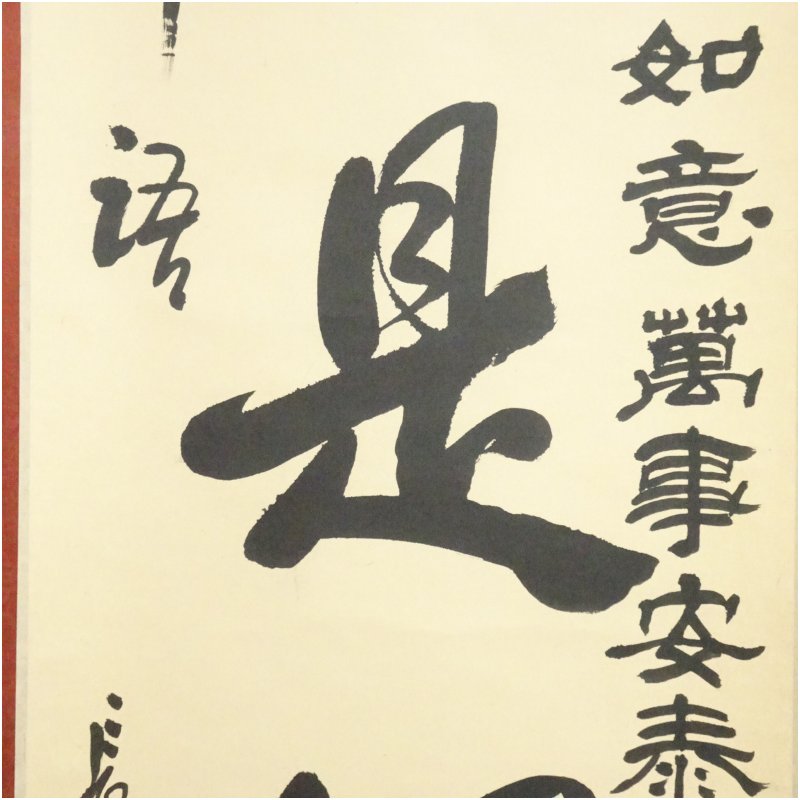 如意萬事安泰
是
語